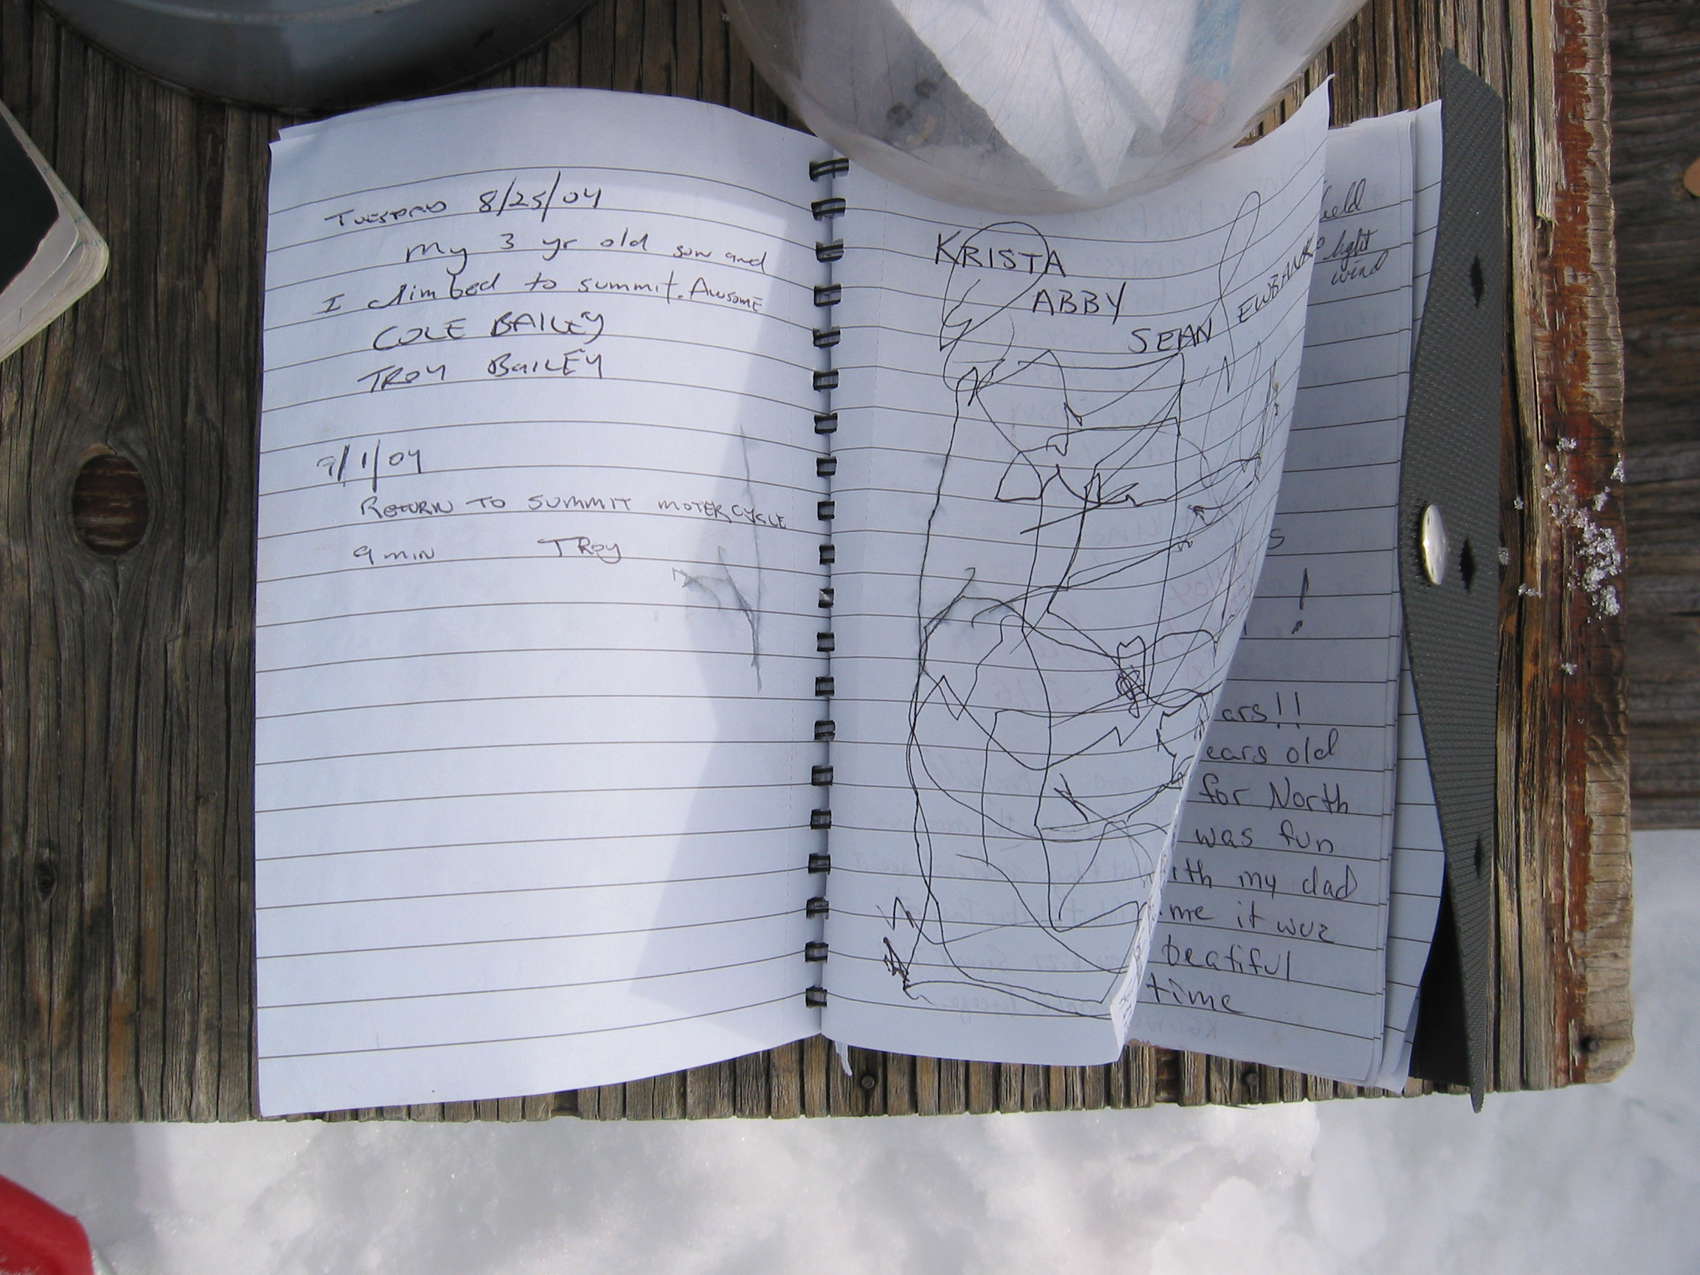 Tuesday 8/25/04
my 3 yr old son and
I climbed to summit. Awsome
COLE BAILEY
TROY BAILEY
9/1/04
RETURN TO SUMMIT MOTERCYCLE
9 min TROY
KRISTA
ABBY
SEAN EWBANK
light
wind
S
!
ars!!
ears old
for North
was fun
ith my dad
me it wuz
beatiful
time